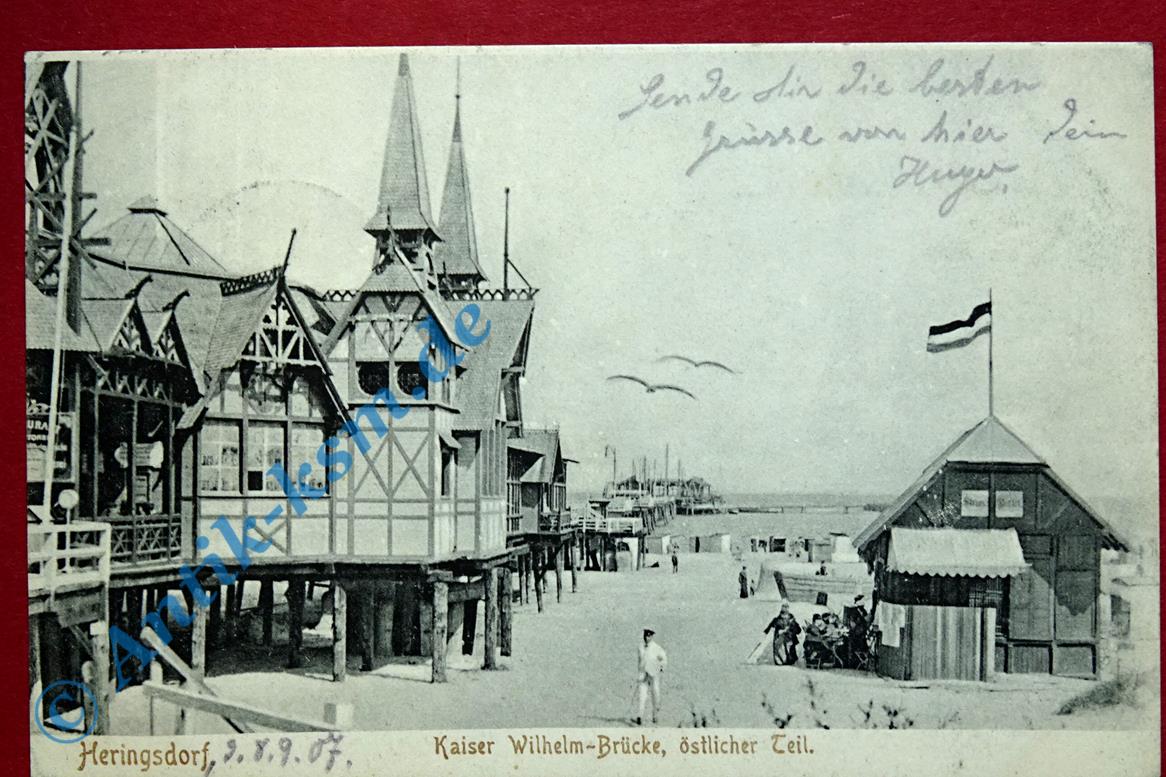 Sende dir die besten
Grüsse von hier Dein
URA
Heringsdorf, d. 8.9.07.
Kaiser Wilhelm-Brücke, östlicher Teil.
© Antik-ksm.de